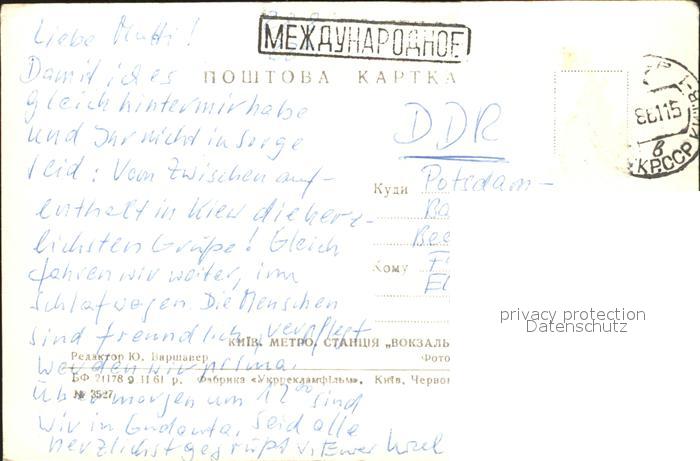 Liebe Mutti!
МЕЖДУНАРОДНОЕ
Damit ich es
ПОШТОВА КАРТКА
gleich hinter mir habe
und Ihr nicht in Sorge
seid: Vom Zwischenauf-
enthalt in Kiew die herz-
lichsten Grüße! Gleich
fahren wir weiter, im
Schlafwagen. Die Menschen
sind freundlich, verpflegt
werden wir prima.
Übermorgen um 12⁰⁰ sind
wir in Gudauta. Seid alle
herzlichst gegrüßt v. Eurer
DDR
Куди Potsdam-
Ba
Кому
КИЇВ. МЕТРО. СТАНЦІЯ „ВОКЗАЛЬ
Редактор Ю. Варшавер Фото
БФ 21178 9.II 61 р. Фабрика «Укррекламфільм», Київ, Червон
№ 3527
КРССР
privacy protection
Datenschutz